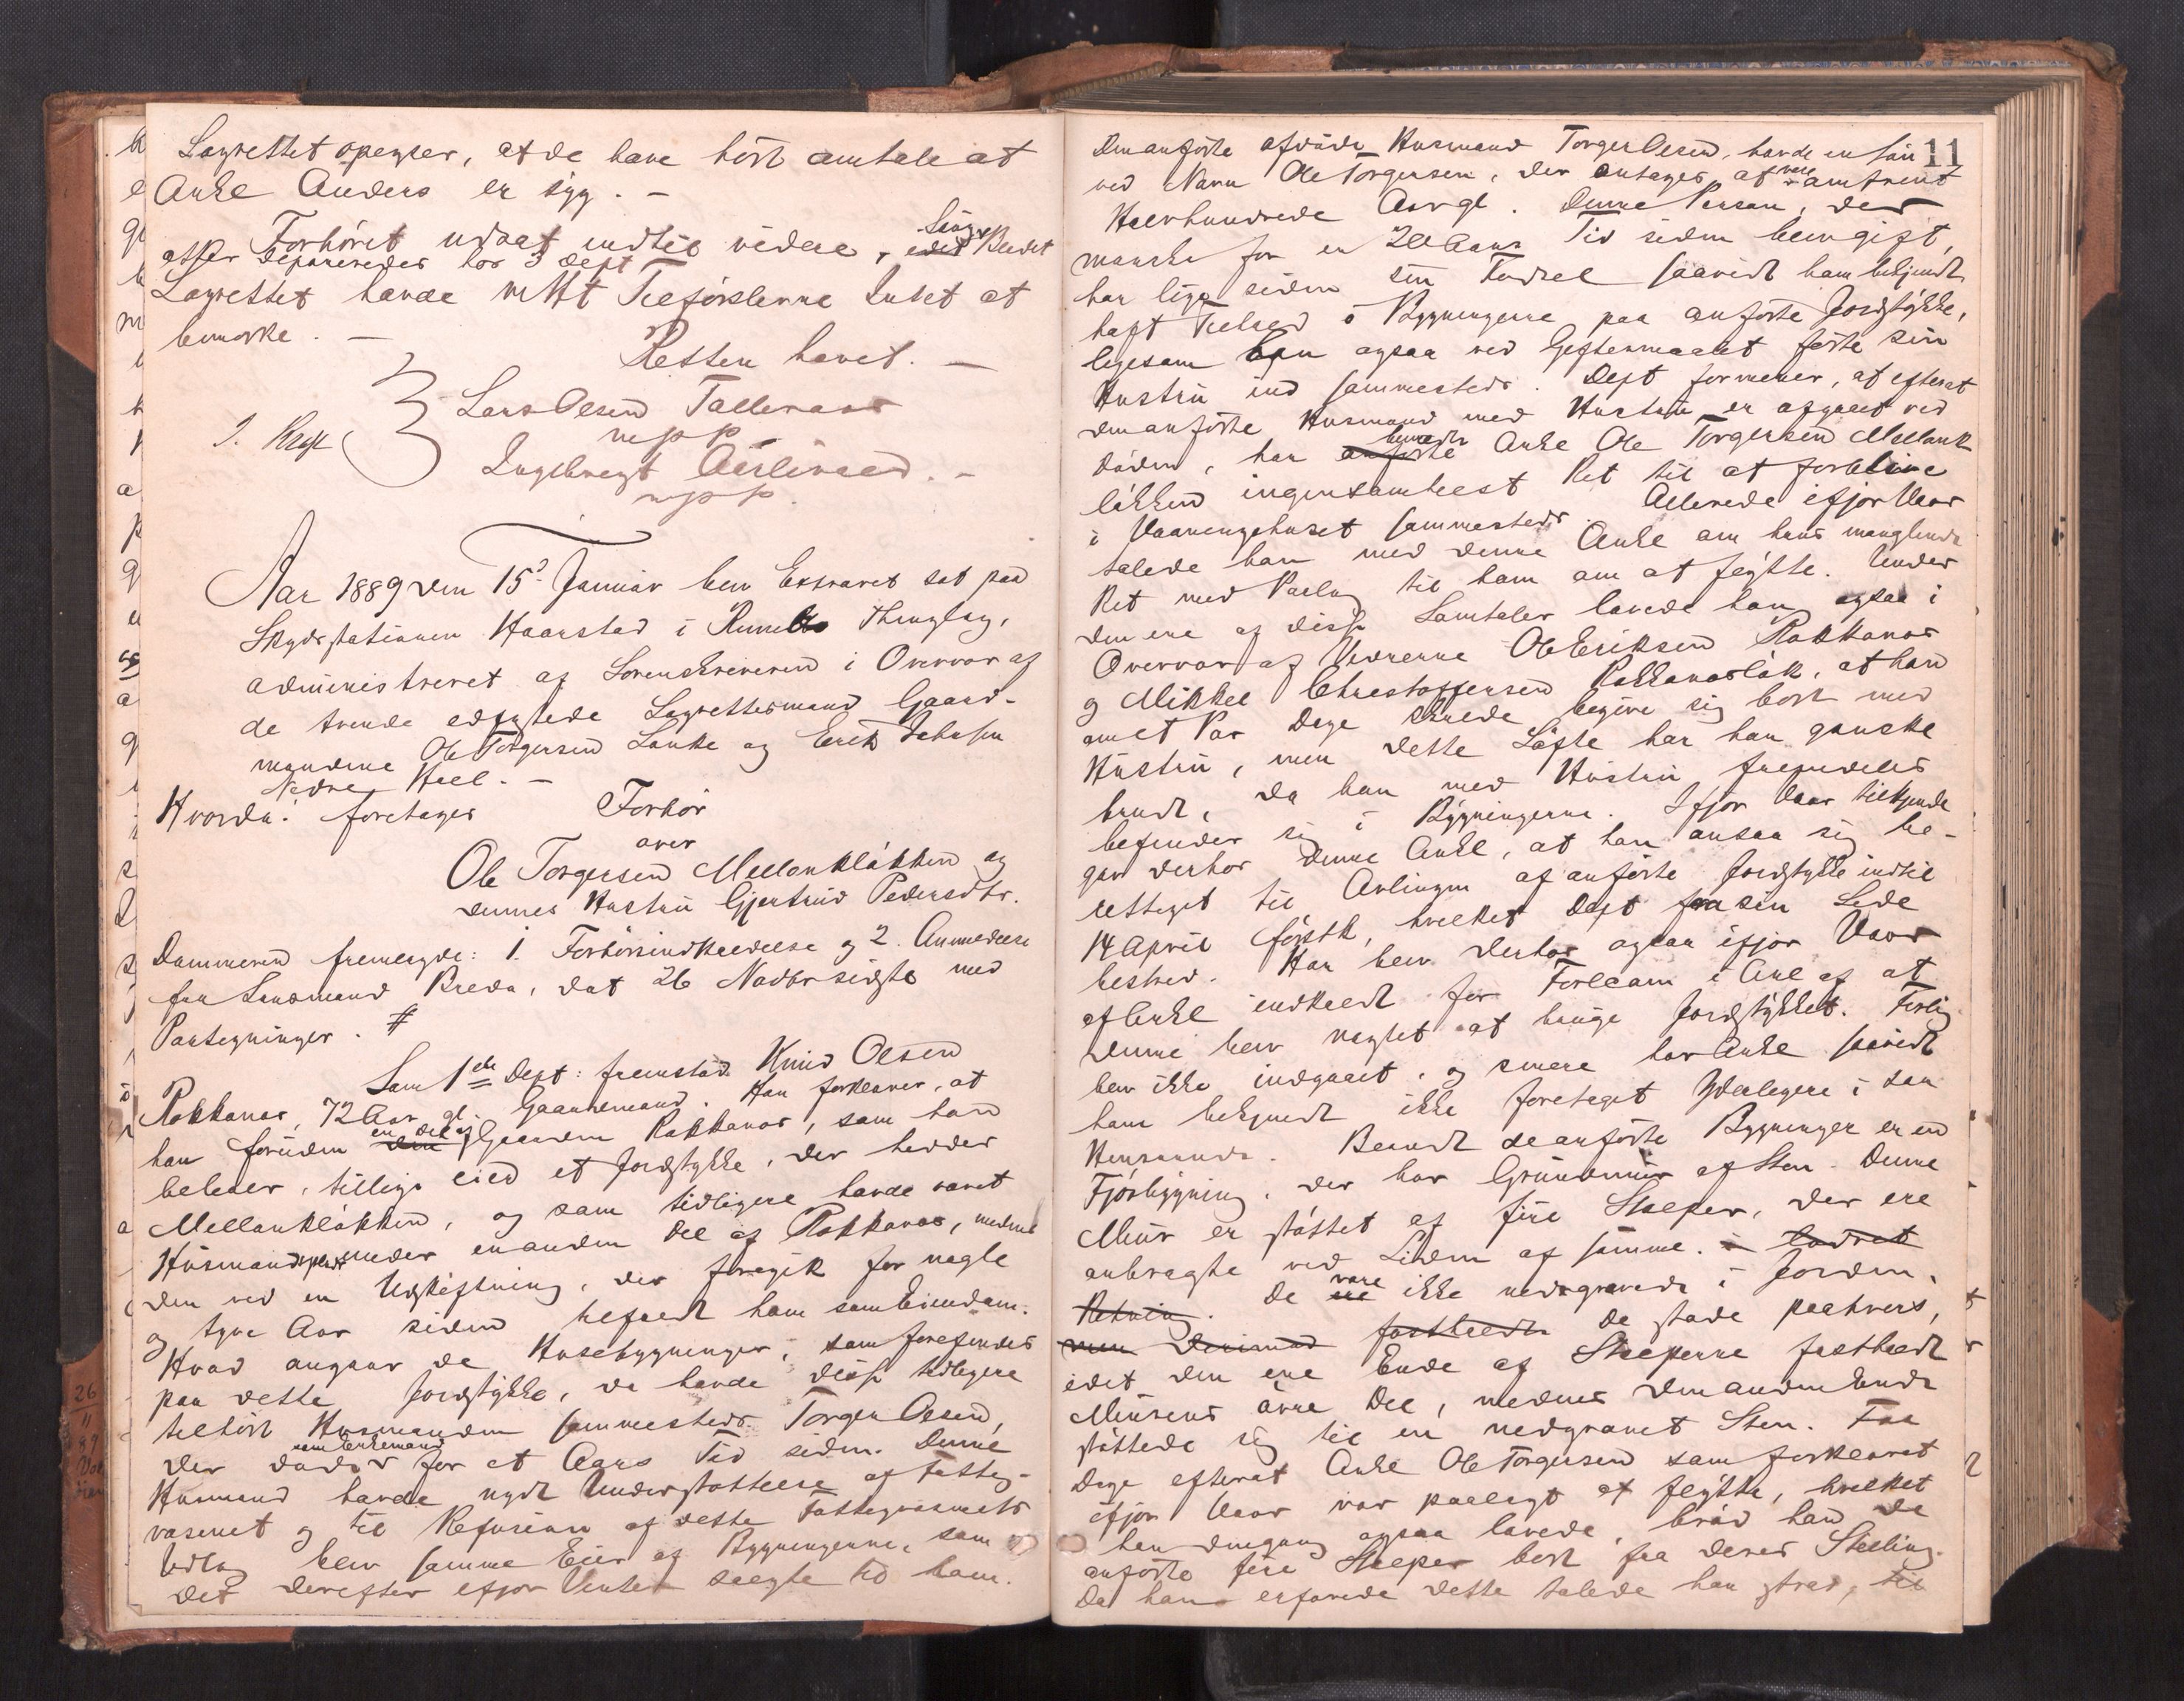 Lagrettet opgyser, at de have hört omtale at
Ankl Anders er syg. –
Forhöret udsat indtil videre, Bladet
efter
Lagrettet havde m Ht Tilförslerne Intet at
bemærke. –
Retten hævet. –
Lars Olsen
mpp.
Ingebregt
mpp.
Aar 1889 den 15de Januar blev Extraret sat paa
Skydsstationen Haarstad i Thinglag,
administreret af Sorenskriveren i Overvær af
de tvende edfæstede Lagrettesmænd Gaard-
mændene Ole Torgersen Lanke og Erik Johnsen
Nedre Hell. –
Hvorda: foretages Forhör
over
Ole Torgersen Mellankløkken og
dennes Hustru Gjertrud Pedersdtr.
Dommeren fremlagde: 1. Forhörsindkaldelse og 2. Anmeldelse
fra Lensmand Breda, dat 26 Novbr sidste med
Paategninger. #
Som 1ste Dept: fremstod Knud Olsen
Rokkanes, 72 Aar gl. Gaardmand. Han forklarer, at
han foruden en Del af Gaarden Rokkanes, som han
beboer, tillige eied et Jordstykke, der hedder
Mellankløkken, og som tidligere havde været
Husmandsplads under en anden Del af Rokkanes, medens
den ved en Udskiftning, der foregik for nogle
og tyve Aar siden tilfaldt ham som Eiendom.
Hvad angaar de Husebygninger, som forefindes
paa dette Jordstykke, da havde disse tidligere
tilhört Husmanden sammesteds Torger Olsen,
der döde som Enkemand for et Aars Tid siden. Denne
Husmand havde nydt Understøttelse af Fattig-
væsenet og til Refusion af dette Fattigvæsenets
Udlæg blev samme Eier af Bygningerne, som
det derefter ifjor Vinter solgte til ham.
11
Den anförte afdöde Husmand Torger Olsen, havde en Sön
ved Navn Ole Torgersen, der antages at være omtrent
Halvhundrede Aar gl. Denne Person, der
maaske for en 20 Aars Tid siden blev gift,
har lige siden sin Födsel saavidt ham bekjendt
haft Tilhold i Bygningerne paa anförte Jordstykke,
ligesom han ogsaa ved Giftermaalet förte sin
Hustru ind sammesteds. Dept formener, at efterat
den anförte Husmand med Hustru er afgaaet ved
döden, har Ankl Ole Torgersen Mellank
løkken ingensomhelst Ret til at forblive
i Vaaningshuset sammesteds. Allerede ifjor Vaar
talede han med denne Ankl om hans manglende
Ret med Paalæg til ham om at flytte. Under
den ene af disse Samtaler lovede han ogsaa i
Overvær af Vidnerne Ole Eriksen Rokkanes
og Mikkel Christoffersen Rokkanesløk, at han
om et Par Dage skulde begive sig bort med
Hustru, men dette Løfte har han ganske
brudt, da han med Hustru fremdeles
befinder sig i Bygningerne. Ifjor Vaar tilkjende
gav derhos denne Ankl, at han ansaa sig be-
rettiget til Avlingen af anförte Jordstykke indtil
14 April förstk, hvilket Dept fra sin Side
bestred. Han blev derhos ogsaa ifjor Vaar
af Ankl indkaldt for Forligkom i Anl af at
denne blev nægtet at bruge Jordstykket. Forlig
blev ikke indgaaet, og senere har Ankl saavidt
ham bekjendt ikke foretaget Yderligere i saa
Henseende. Blandt de anförte Bygninger er en
Fjösbygning, der har Grundmur af Sten. Denne
Muur er støttet af fire Stolper, der ere
anbragte ved Siden af samme. i lodret
Retning. De vare ikke nedgravede i Jorden,
men derimod fastholdte De stode paatvers,
idet den ene Ende af Stolperne fastholdt
Murens övre Del, medens den anden Ende
støttede sig til en nedgravet Sten. Faa
Dage efterat Ankl Ole Torgersen som forklaret
ifjor Vaar var paalagt at flytte, hvilket
han dengang ogsaa lovede, bröd han de
anförte fire Stolper bort fra deres Stilling.
Da han erfarede dette talede han strax, til
26
11
89